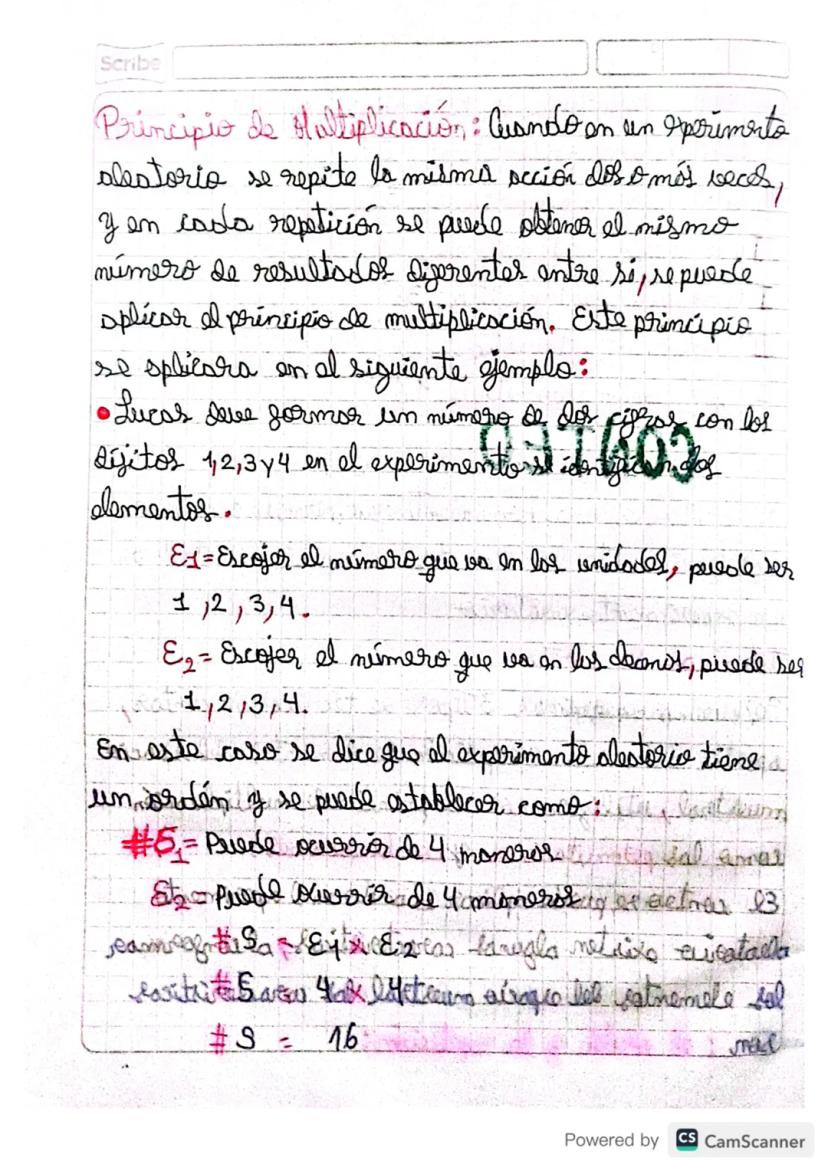 Scribe
Principio de Multiplicación: Cuando en un experimento
aleatorio se repite la misma acción dos o más veces,
y en cada repetición se puede obtener el mismo
número de resultados diferentes entre sí, se puede
aplicar el principio de multiplicación. Este principio
se aplicara en el siguiente ejemplo:
• Lucas deve formar un número de dos cifras con los
díjitos 1,2,3 y 4 en el experimento se identifican dos
elementos.
E1 = Escojer el número que va en las unidades, puede ser
1, 2, 3, 4.
E2 = Escojer el número que va en las decenas, puede ser
1, 2, 3, 4.
En este caso se dice que el experimento aleatorio tiene
un ordén y se puede establecer como:
#E1 = Puede ocurrir de 4 maneras
E2 = Puede ocurrir de 4 maneras
#S = E1 x E2
#S = 4 x 4
#S = 16
Powered by CS CamScanner